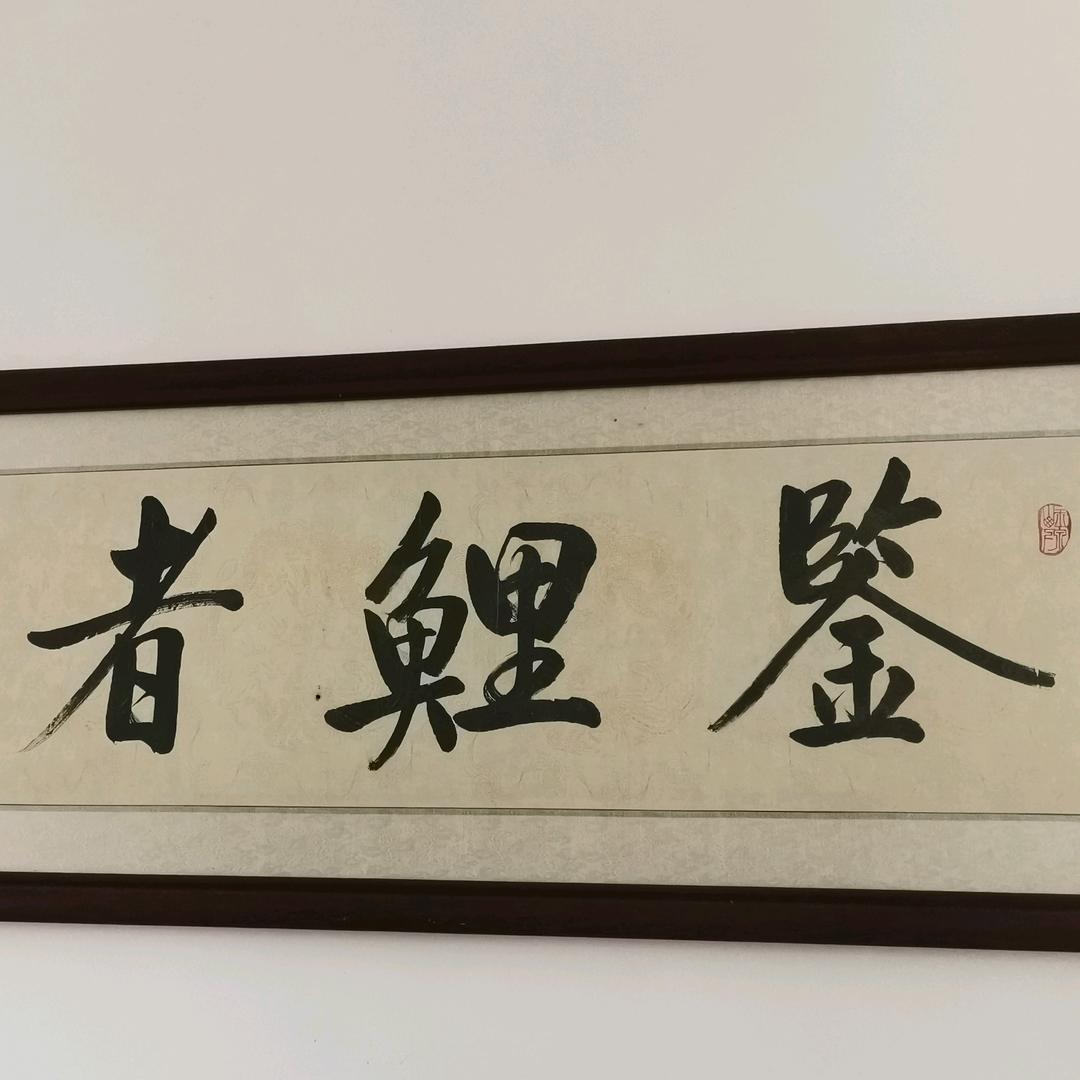 鋻鯉者